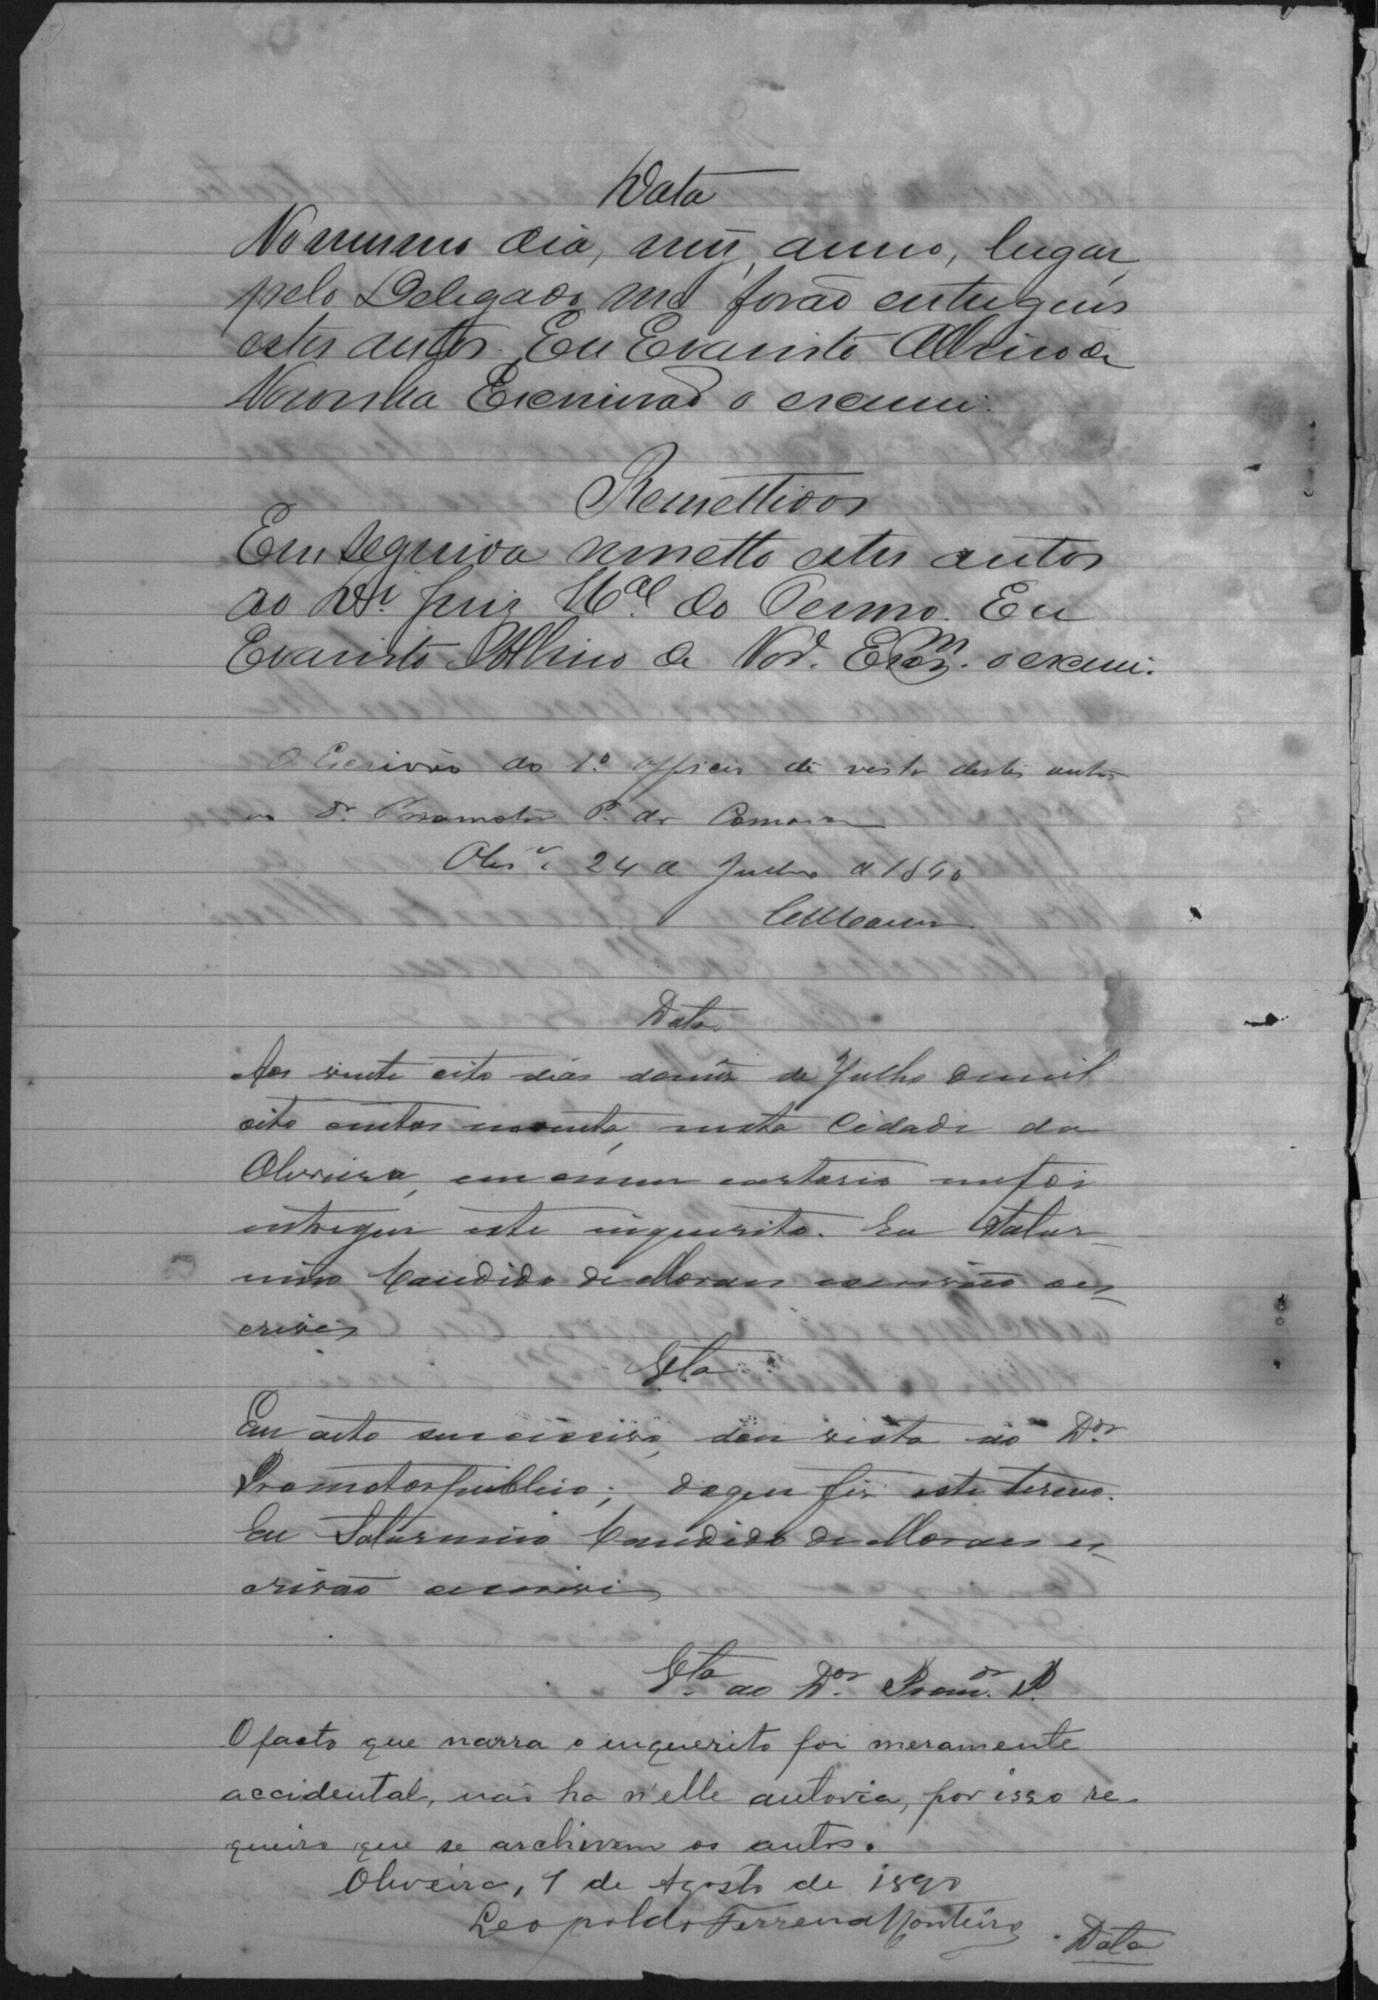 Data
No mesmo dia, mez, anno, lugar,
pelo Delegado me forão entregues
estes autos. Eu Evaristo Albino de
Noronha Escrivão o escrevi.
Remettidos
Em seguida remetto estes autos
ao Dr. Juiz Mal. do Termo. Eu
Evaristo Albino de Nora. Escm. o escrevi.
O Escrivão do 1º officio dê vista destes autos
ao Dr. Promotor P. da Comarca
Olivra. 24 de Julho de 1890
Data
Aos vinte oito dias do mez de Julho de mil
oito centos noventa, nesta Cidade da
Oliveira, em o meu cartorio me foi
entregue este inquerito. Eu Satur-
nino Candido de Moraes escrivão o es-
crevi
Vta
Em acto successivo, dou vista ao Dor.
Promotor publico; do que fiz este termo.
Eu Saturnino Candido de Moraes es-
crivão o escrevi
Vta. ao Dor. Promor. P.
O facto que narra o inquerito foi meramente
accidental, não ha n'elle autoria, por isso re-
queiro que se archivem os autos.
Oliveira, 1 de Agosto de 1890
Leopoldo Ferreira Monteiro
Data